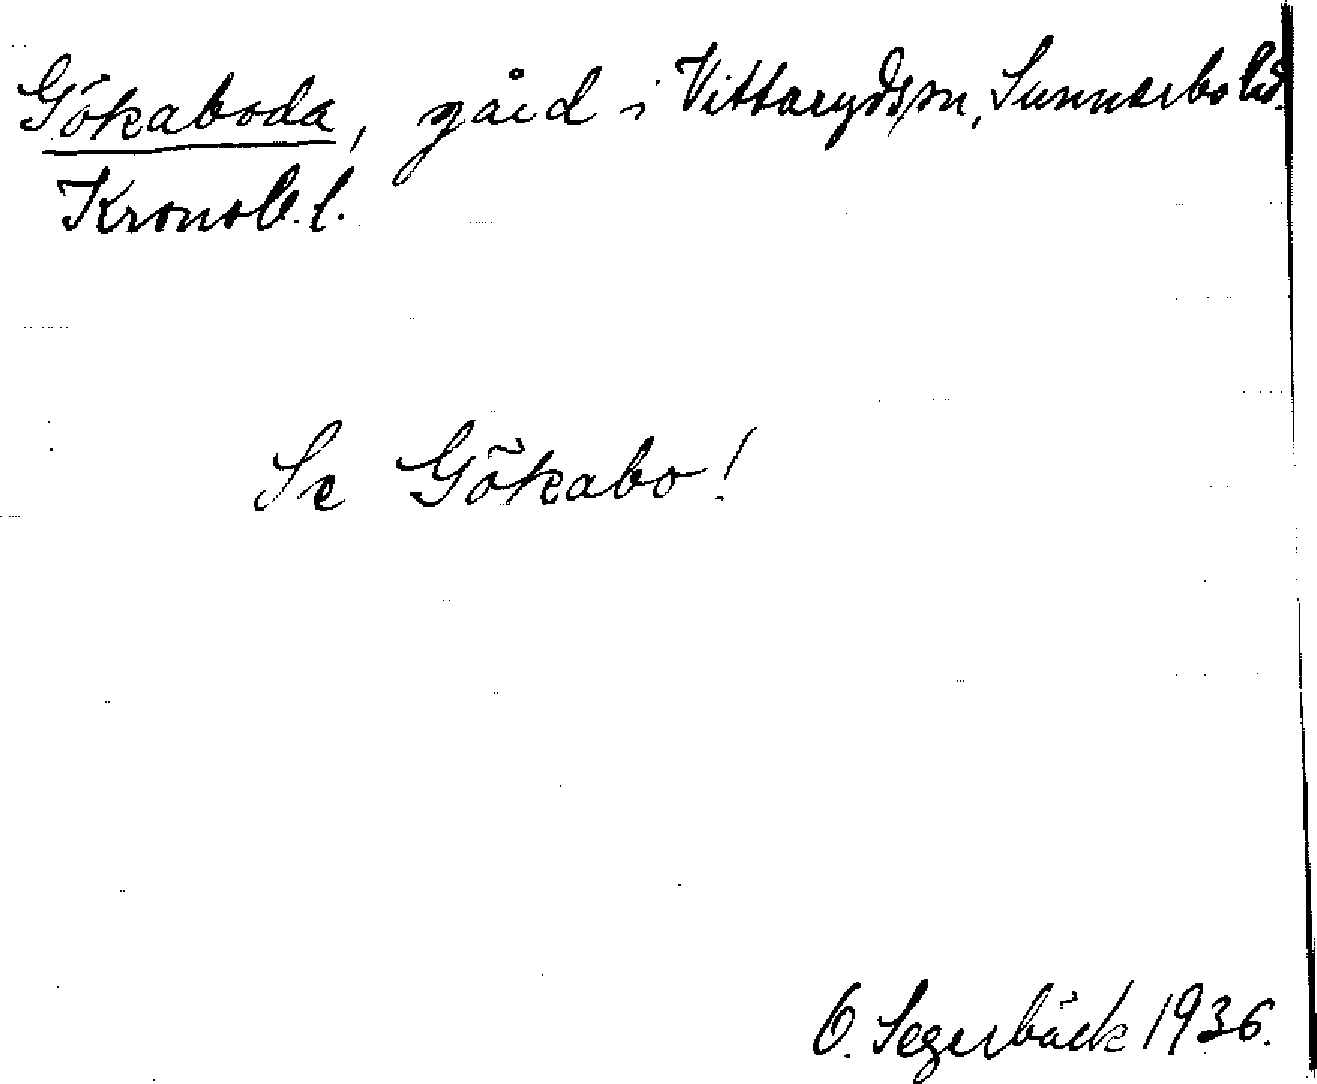 Gökaboda, gård i Vittarydssn, Sunnerbo hd.
Kronob. l.
Se Gökabo!
O. Segerbäck 1936.